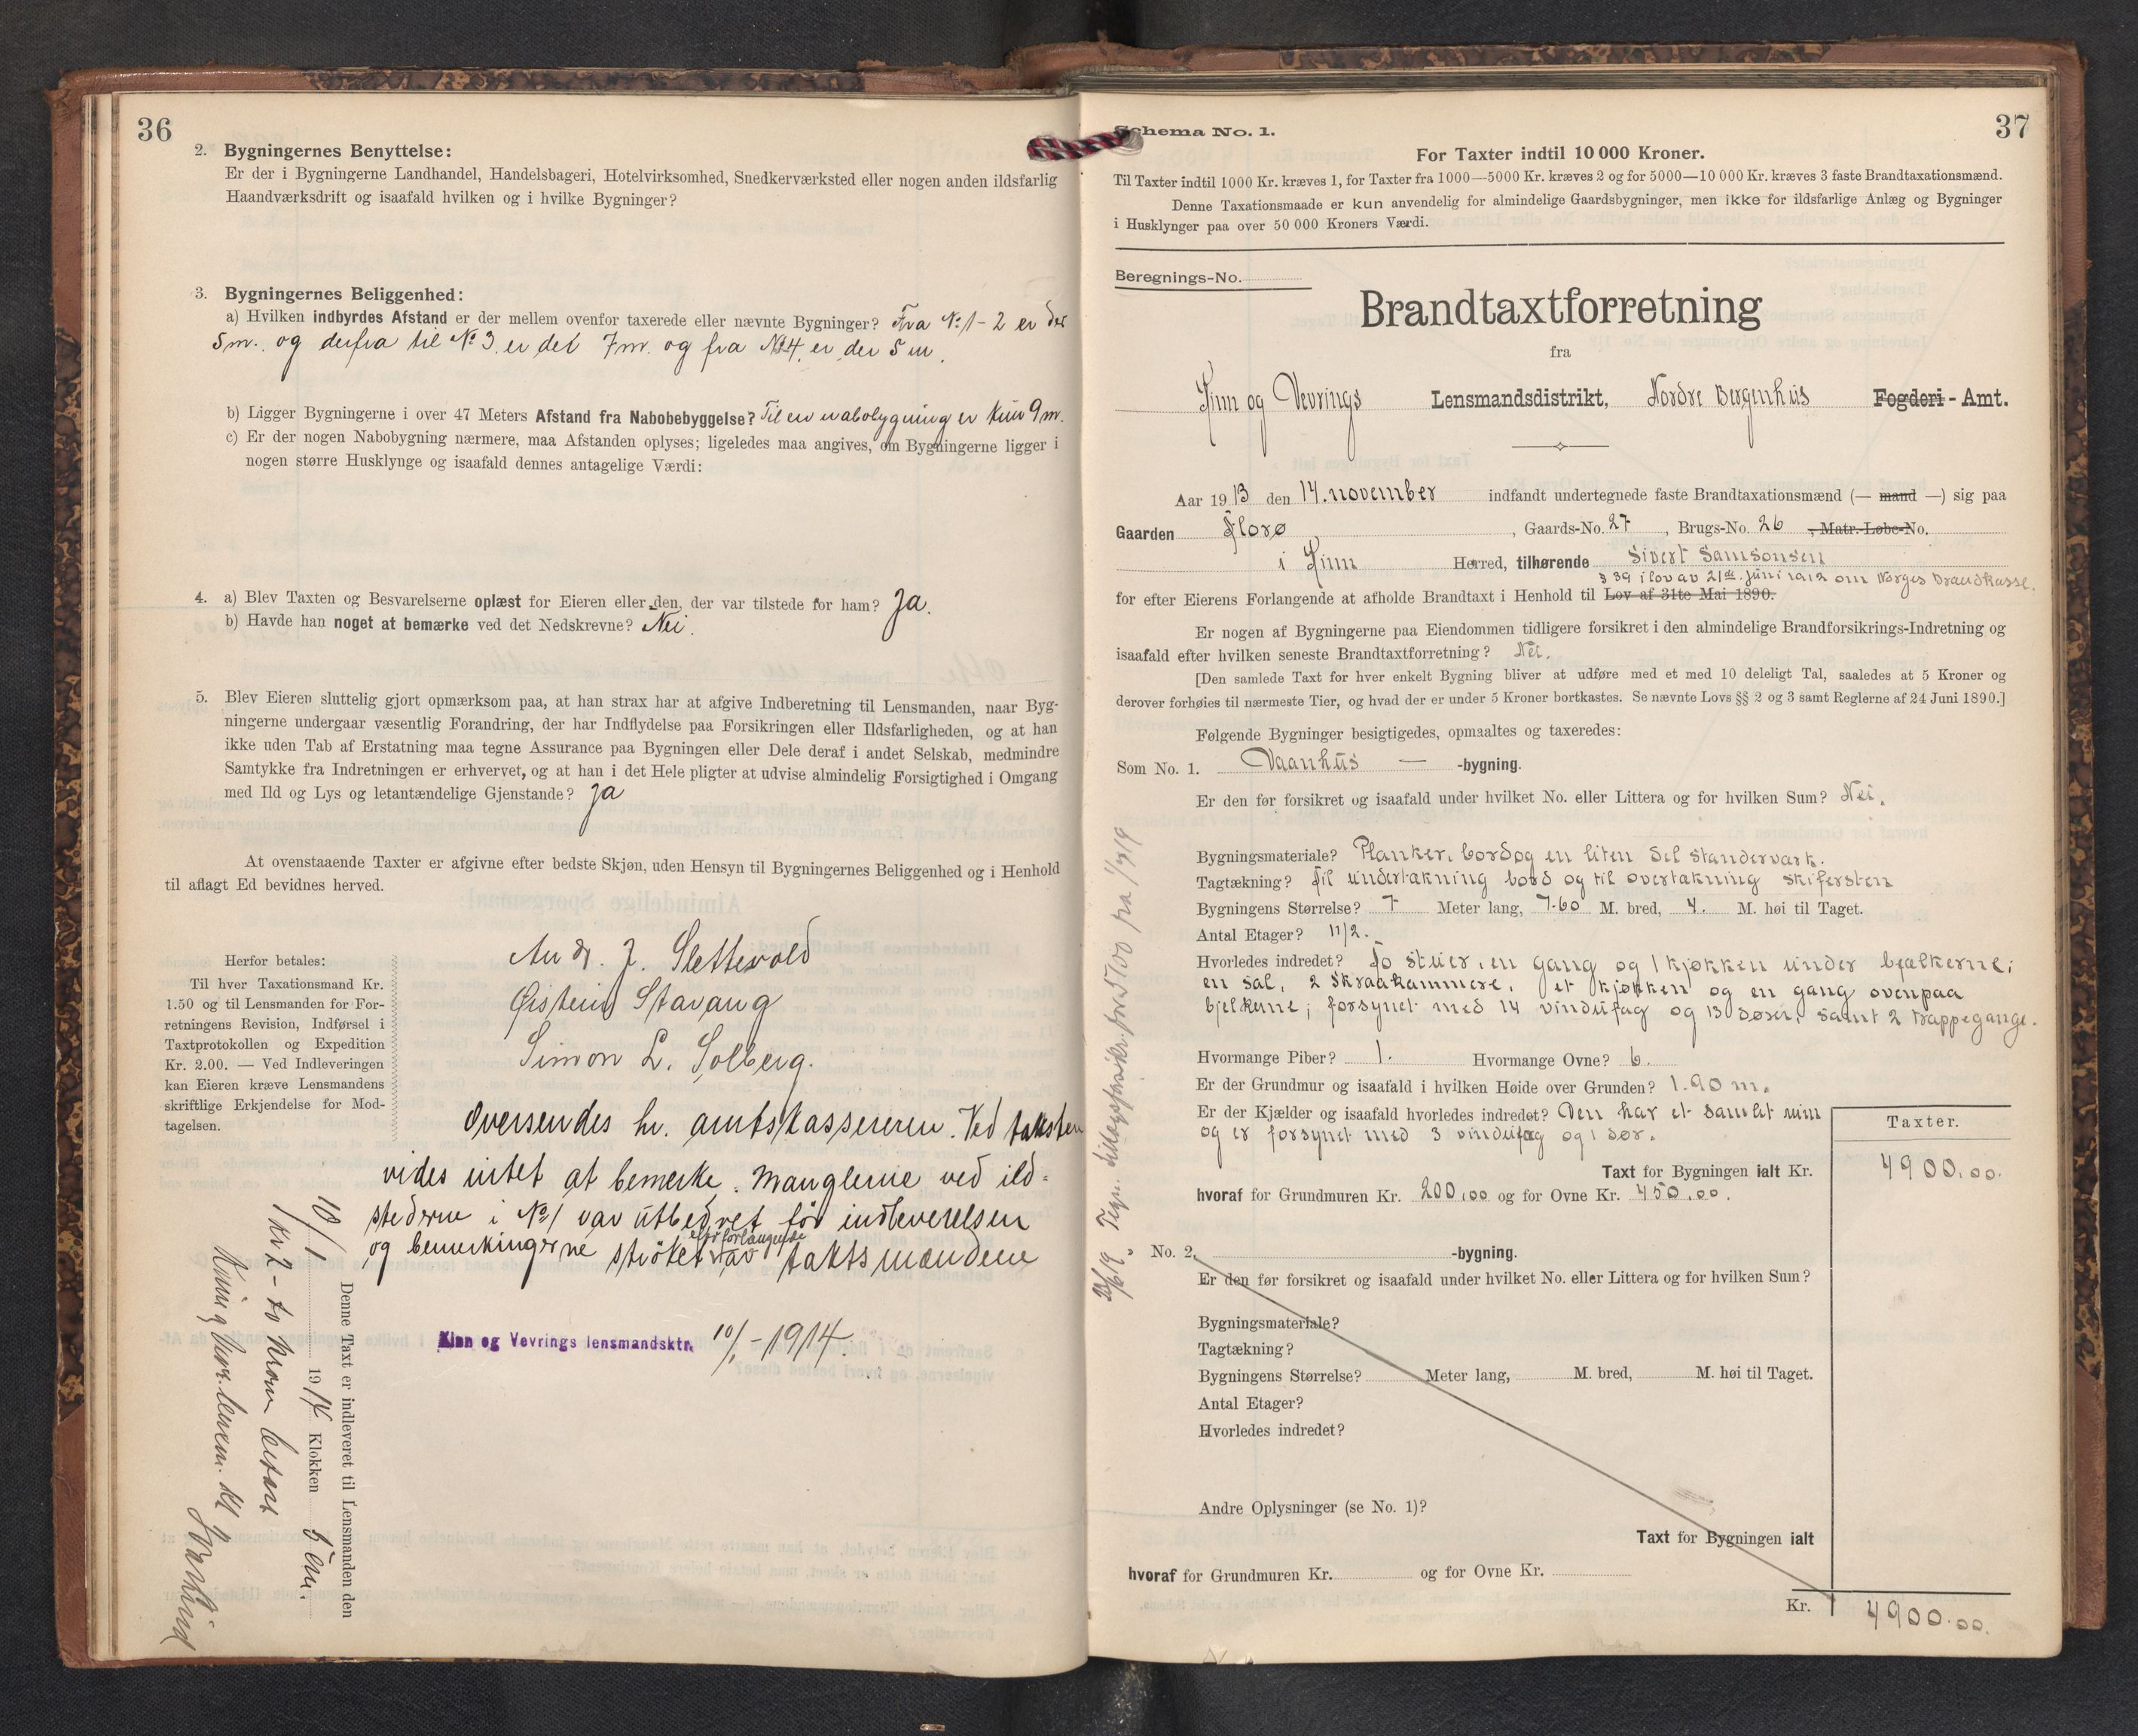 36
2. Bygningernes Benyttelse:
Er der i Bygningerne Landhandel, Handelsbageri, Hotelvirksomhed, Snedkerværksted eller nogen anden ildsfarlig
Haandværksdrift og isaafald hvilken og i hvilke Bygninger?
3. Bygningernes Beliggenhed:
a) Hvilken indbyrdes Afstand er der mellem ovenfor taxerede eller nævnte Bygninger? Fra No 1 - 2 er der
5 m. og derfra til No 3 er det 7 m. og fra No 4 er der 5 m.
b) Ligger Bygningerne i over 47 Meters Afstand fra Nabobebyggelse? Til en nabobygning er kun 9 m.
c) Er der nogen Nabobygning nærmere, maa Afstanden oplyses; ligeledes maa angives, om Bygningerne ligger i
nogen større Husklynge og isaafald dennes antagelige Værdi:
4. a) Blev Taxten og Besvarelserne oplæst for Eieren eller den, der var tilstede for ham? Ja.
b) Havde han noget at bemærke ved det Nedskrevne? Nei.
5. Blev Eieren sluttelig gjort opmærksom paa, at han strax har at afgive Indberetning til Lensmanden, naar Byg-
ningerne undergaar væsentlig Forandring, der har Indflydelse paa Forsikringen eller Ildsfarligheden, og at han
ikke uden Tab af Erstatning maa tegne Assurance paa Bygningen eller Dele deraf i andet Selskab, medmindre
Samtykke fra Indretningen er erhvervet, og at han i det Hele pligter at udvise almindelig Forsigtighed i Omgang
med Ild og Lys og letantændelige Gjenstande? Ja
At ovenstaaende Taxter er afgivne efter bedste Skjøn, uden Hensyn til Bygningernes Beliggenhed og i Henhold
til aflagt Ed bevidnes herved.
Andr. J. Slettevold
Øistein Stavang
Simon L. Solberg.
Herfor betales:
Til hver Taxationsmand Kr.
1.50 og til Lensmanden for For-
retningens Revision, Indførsel i
Taxtprotokollen og Expedition
Kr. 2.00. — Ved Indleveringen
kan Eieren kræve Lensmandens
skriftlige Erkjendelse for Mod-
tagelsen.
Oversendes hr. amtskassereren. Ved taksten
vides intet at bemerke. Manglerne ved ild-
stederne i No 1 var utbedret før indleverelsen
og bemerkingerne strøket efter forlangende av takstmændene
Kinn og Vevrings lensmandsktr. 10/1 - 1914.
Denne Taxt er indleveret til Lensmanden den
10/1 1914 Klokken 5 em.
Kr 2 - to kroner betalt
37
Schema No. 1.
For Taxter indtil 10 000 Kroner.
Til Taxter indtil 1000 Kr. kræves 1, for Taxter fra 1000—5000 Kr. kræves 2 og for 5000—10 000 Kr. kræves 3 faste Brandtaxationsmænd.
Denne Taxationsmaade er kun anvendelig for almindelige Gaardsbygninger, men ikke for ildsfarlige Anlæg og Bygninger
i Husklynger paa over 50 000 Kroners Værdi.
Beregnings-No.
Brandtaxtforretning
fra
Kinn og Vevrings Lensmandsdistrikt, Nordre Bergenhus Fogderi - Amt.
Aar 1913 den 14. november indfandt undertegnede faste Brandtaxationsmænd (— mand —) sig paa
Gaarden Florø, Gaards-No. 27, Brugs-No. 26, Matr.-Løbe-No.
i Kinn Herred, tilhørende Sivert Samsonsen
§ 39 i lov av 21de juni 1912 om Norges Brandkasse.
for efter Eierens Forlangende at afholde Brandtaxt i Henhold til Lov af 31te Mai 1890.
Er nogen af Bygningerne paa Eiendommen tidligere forsikret i den almindelige Brandforsikrings-Indretning og
isaafald efter hvilken seneste Brandtaxtforretning? Nei.
[Den samlede Taxt for hver enkelt Bygning bliver at udføre med et med 10 deleligt Tal, saaledes at 5 Kroner og
derover forhøies til nærmeste Tier, og hvad der er under 5 Kroner bortkastes. Se nævnte Lovs §§ 2 og 3 samt Reglerne af 24 Juni 1890.]
Følgende Bygninger besigtigedes, opmaaltes og taxeredes:
Som No. 1. Vaanhus — -bygning.
Er den før forsikret og isaafald under hvilket No. eller Littera og for hvilken Sum? Nei.
Bygningsmateriale? Planker, bord og en liten del standerværk.
Tagtækning? Til undertækning bord og til overtækning skifersten
Bygningens Størrelse? 7 Meter lang, 7.60 M. bred, 4. M. høi til Taget.
Antal Etager? 1 1/2.
Hvorledes indredet? To stuer, en gang og 1 kjøkken under bjælkerne;
en sal, 2 skraakammere, et kjøkken og en gang ovenpaa
bjelkerne; forsynet med 14 vindufag og 13 døren, samt 2 trappegange.
Hvormange Piber? 1. Hvormange Ovne? 6.
Er der Grundmur og isaafald i hvilken Høide over Grunden? 1.90 m.
Er der Kjælder og isaafald hvorledes indredet? Den har et samlet rum
og er forsynet med 3 vindufag og 1 dør.
Taxter.
Taxt for Bygningen ialt Kr. 4900.00.
hvoraf for Grundmuren Kr. 200.00 og for Ovne Kr. 450.00.
No. 2, -bygning.
Er den før forsikret og isaafald under hvilket No. eller Littera og for hvilken Sum?
Bygningsmateriale?
Tagtækning?
Bygningens Størrelse? Meter lang, M. bred, M. høi til Taget.
Antal Etager?
Hvorledes indredet?
Andre Oplysninger (se No. 1)?
Taxt for Bygningen ialt
hvoraf for Grundmuren Kr. og for Ovne Kr.
Kr. 4900.00.